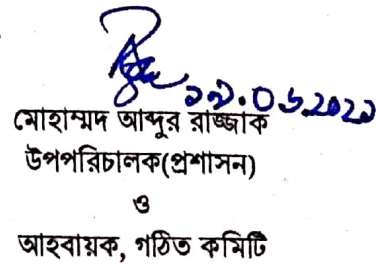 মোহাম্মদ আব্দুর রাজ্জাক
উপপরিচালক(প্রশাসন)
ও
আহবায়ক, গঠিত কমিটি